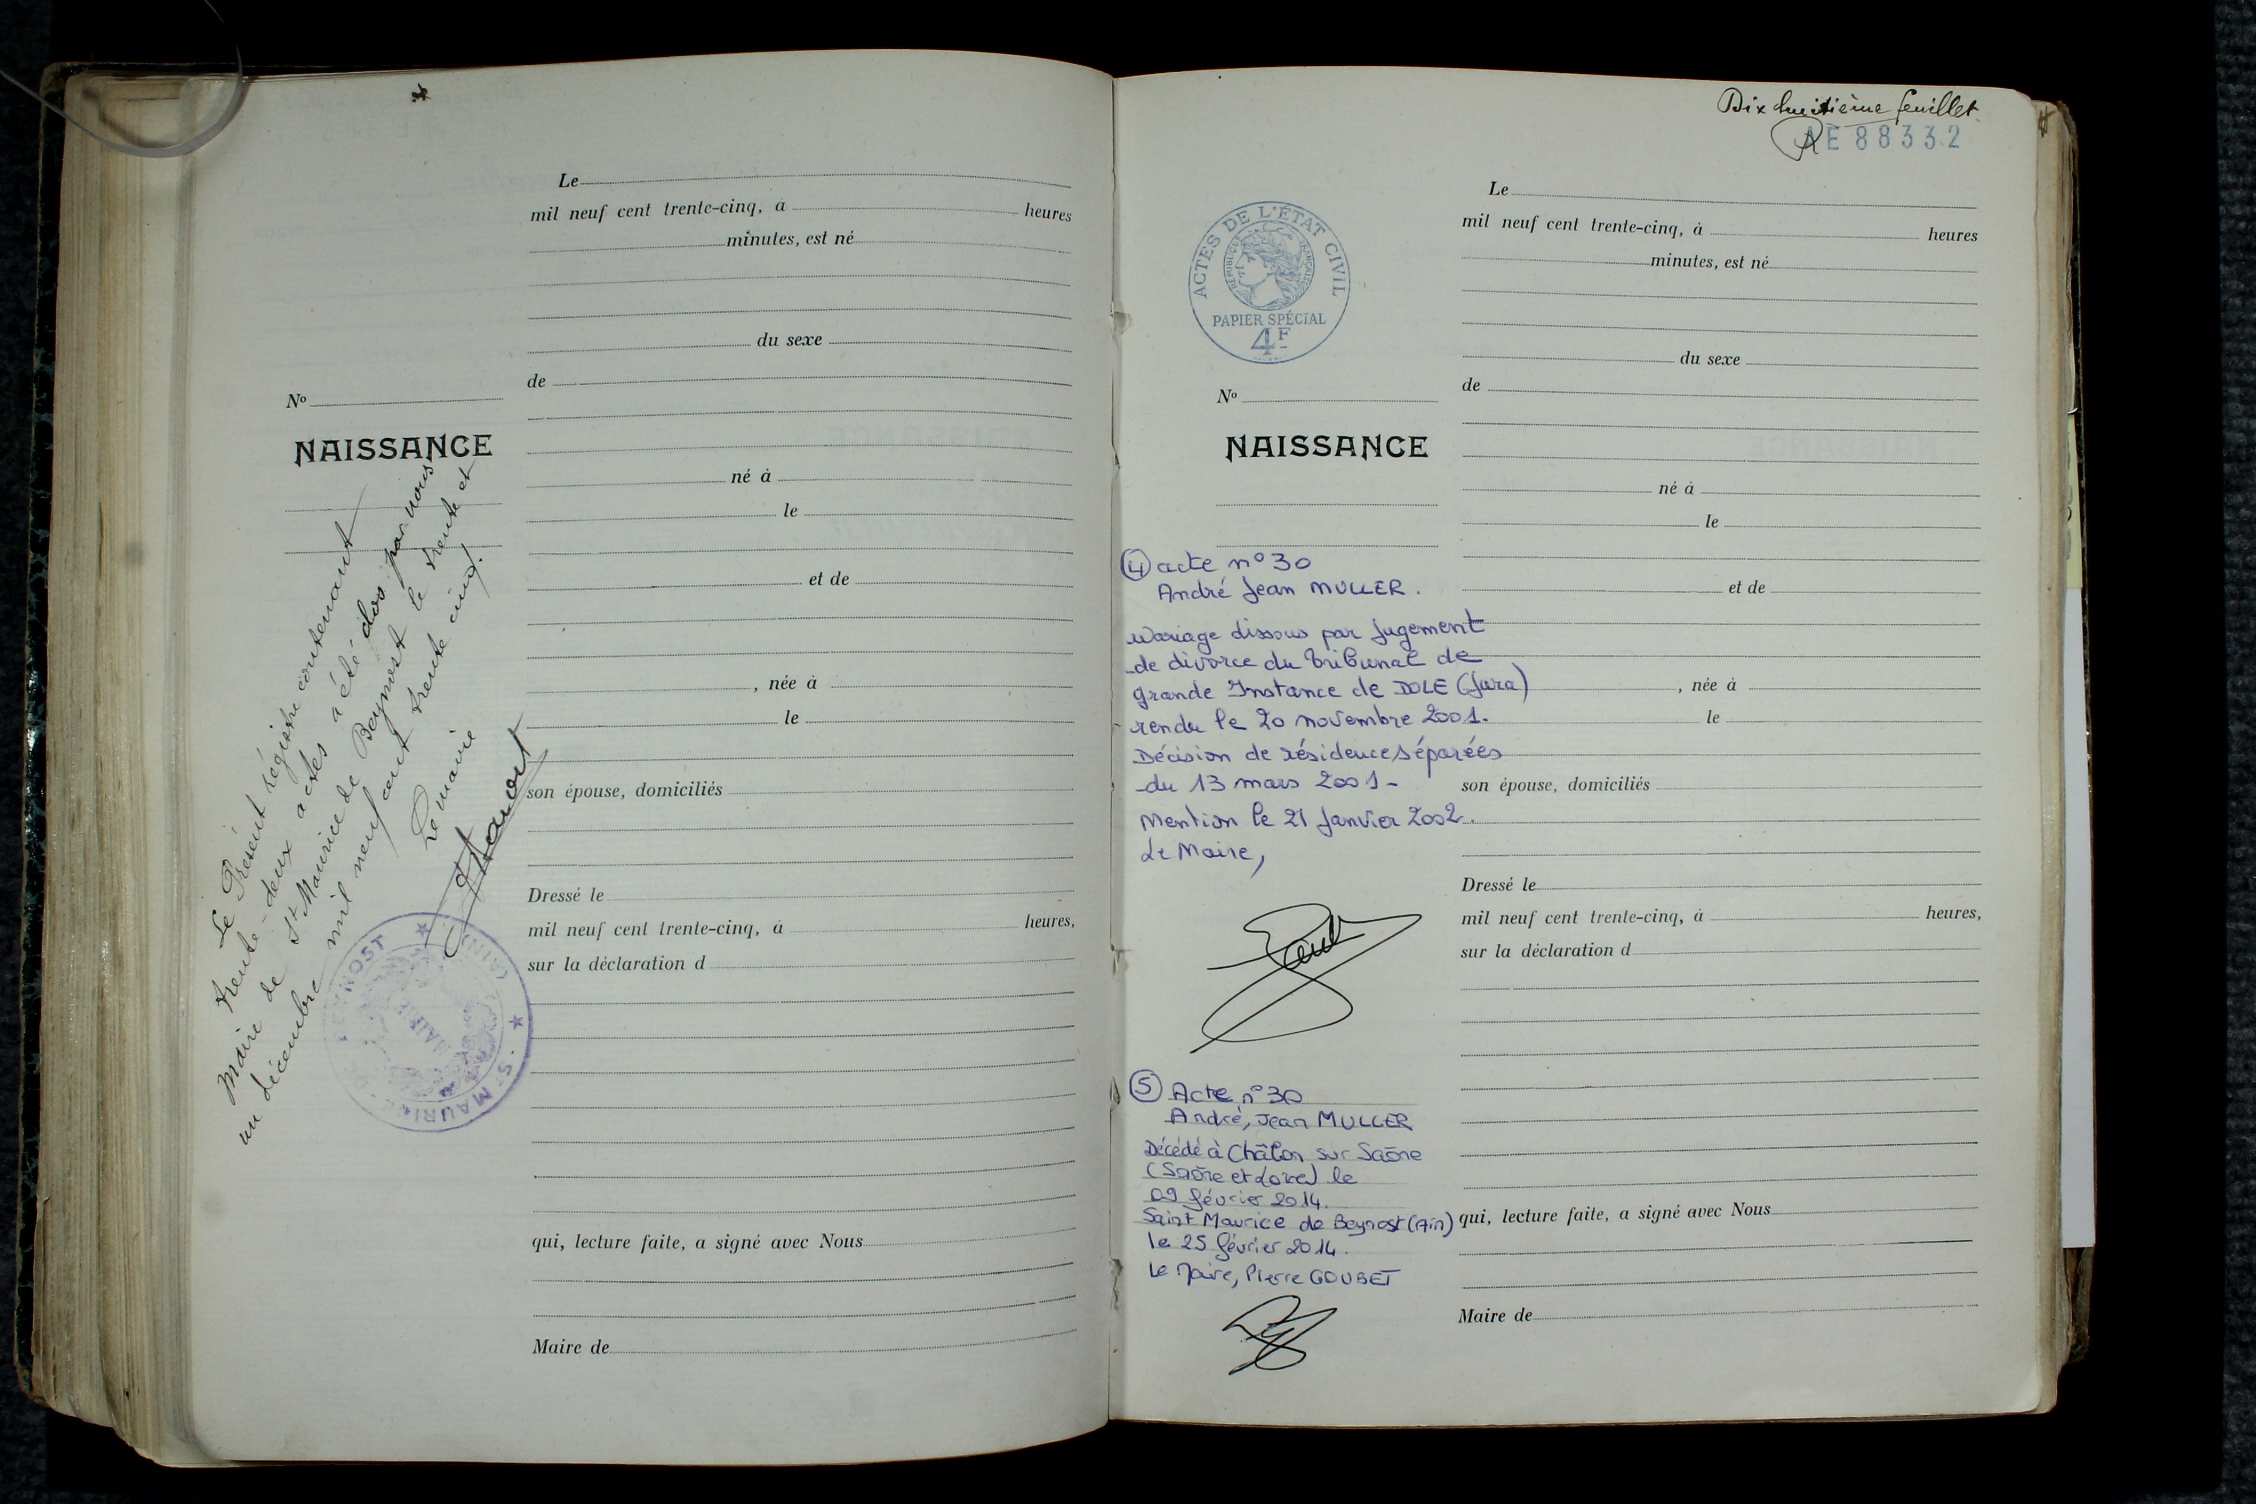 Le
mil neuf cent trente-cinq, à heures
minutes, est né
du sexe
de
No
NAISSANCE
né à
le
et de
, née à
le
son épouse, domiciliés
Dressé le
mil neuf cent trente-cinq, à heures,
sur la déclaration d
qui, lecture faite, a signé avec Nous
Maire de
Le Présent régistre contenant
trente-deux actes a été clos par nous
Maire de St Maurice de Beynost le trente et
un décembre mil neuf cent trente cinq.
Le maire
ST MAURICE DE BEYNOST (AIN)
MAIRIE
Dix huitième feuillet
AE 88332
ACTES DE L'ÉTAT CIVIL
RÉPUBLIQUE FRANÇAISE
PAPIER SPÉCIAL
4F
Le
mil neuf cent trente-cinq, à heures
minutes, est né
du sexe
de
No
NAISSANCE
né à
le
et de
, née à
le
son épouse, domiciliés
Dressé le
mil neuf cent trente-cinq, à heures,
sur la déclaration d
qui, lecture faite, a signé avec Nous
Maire de
4 acte n° 30
André Jean MULLER.
Mariage dissous par Jugement
de divorce du Tribunal de
Grande Instance de DOLE (Jura)
rendu le 20 novembre 2001.
Décision de résidence séparées
du 13 mars 2001-
Mention le 21 Janvier 2002.
Le Maire,
5 Acte n° 30
André, Jean MULLER
Décédé à Châlon sur Saône
(Saône et Loire) le
09 février 2014.
Saint Maurice de Beynost (Ain)
le 25 février 2014.
Le Maire, Pierre GOUBET